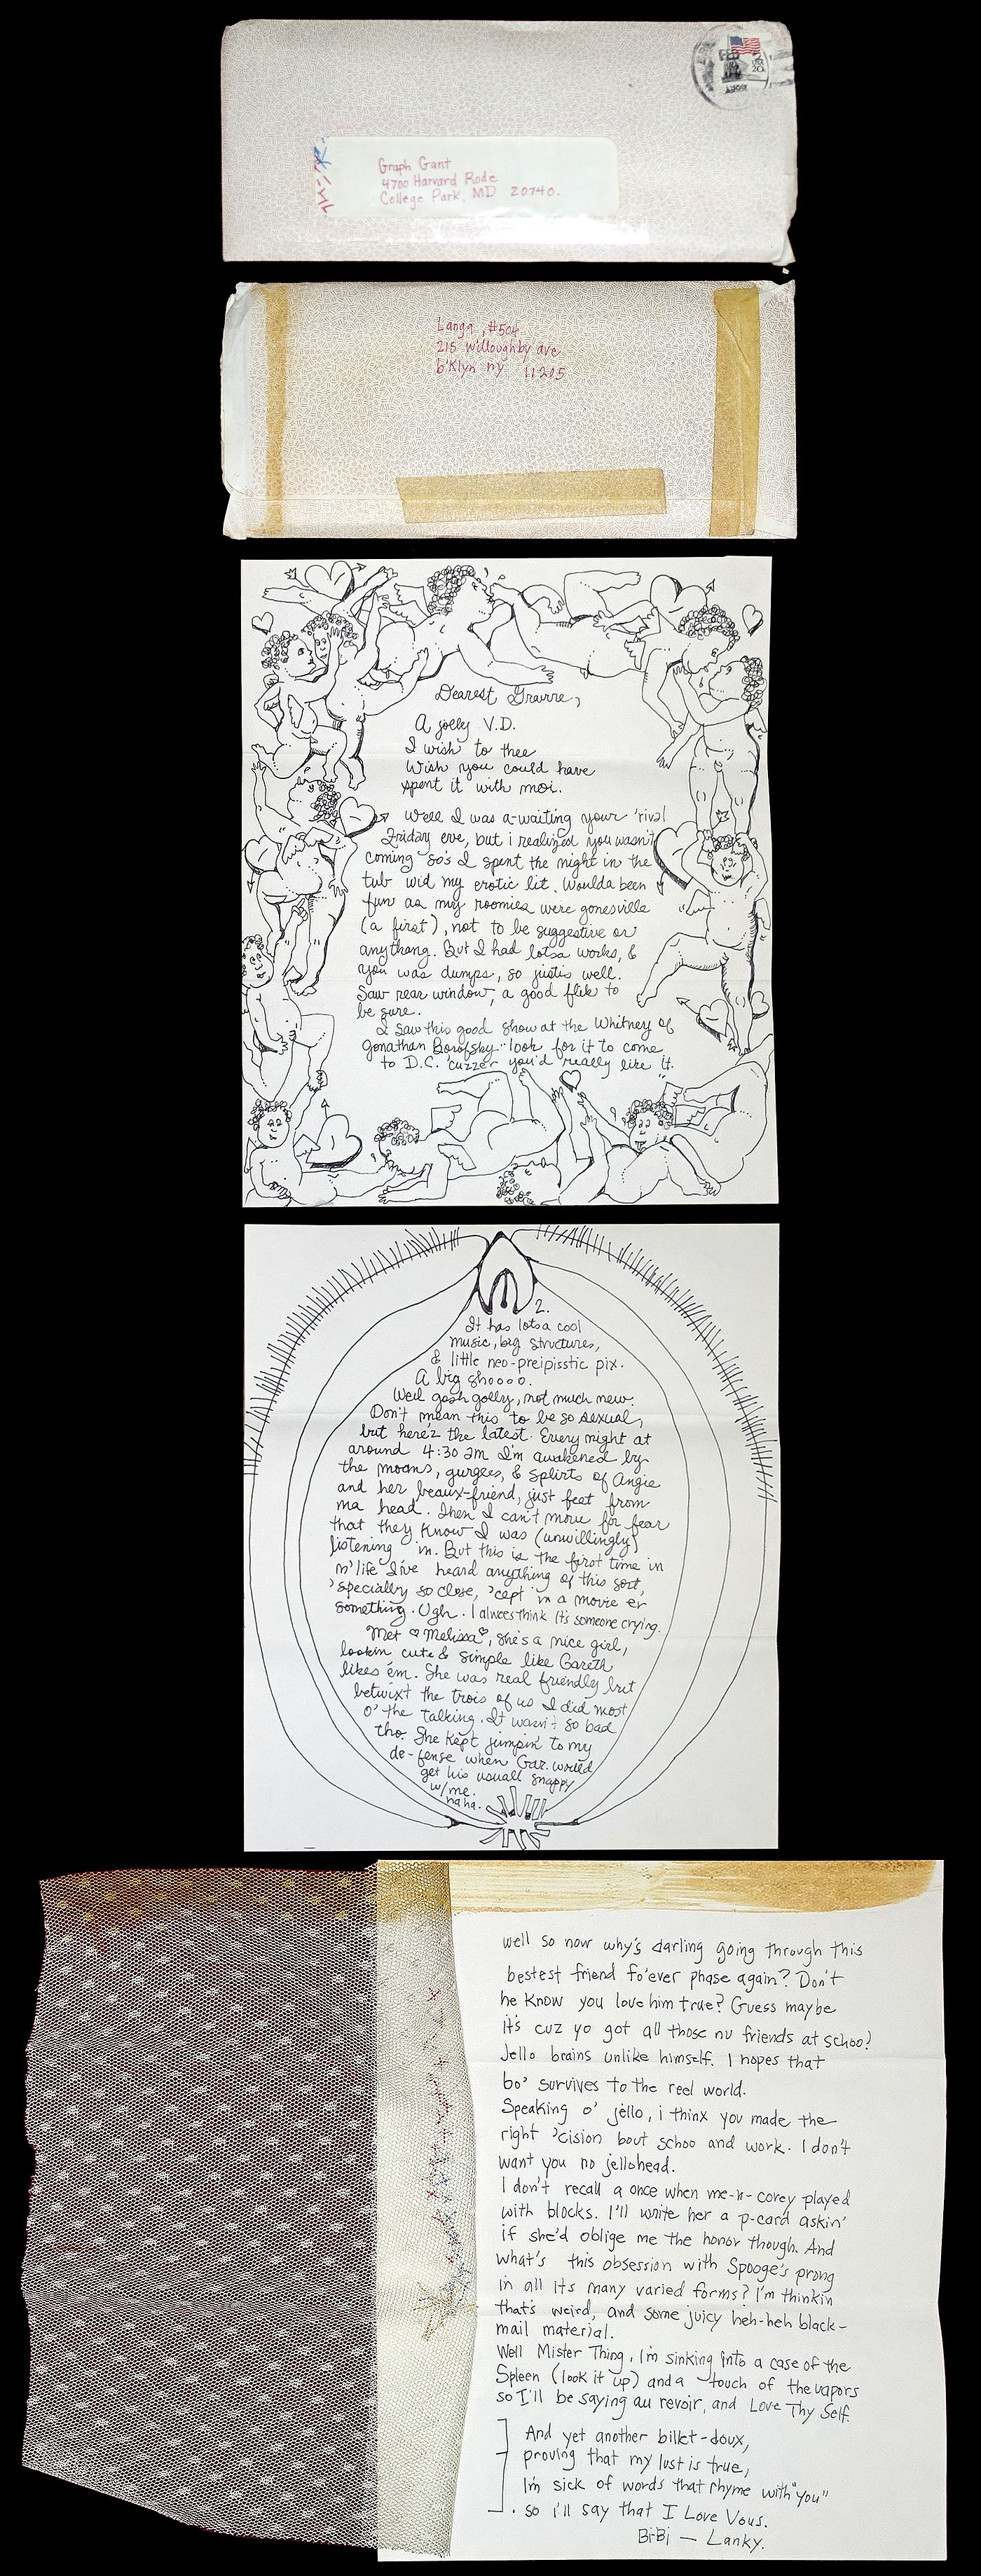 USA
20c
Graph Gant
4700 Harvard Rode
College Park, MD 20740.
Langa, #504
215 willoughby ave
b'klyn ny 11205
Dearest Gravvre,
A jolly V.D.
I wish to thee
Wish you could have
spent it with moi.
Well I was a-waiting your 'rival
Friday eve, but i realized you wasn't
coming so's I spent the night in the
tub wid my erotic lit. Woulda been
fun as my roomies were gonesville
(a first), not to be suggestive or
anythang. But I had lotsa works, &
you was dumps, so justis well.
Saw rear window, a good flik to
be sure.
I saw this good show at the Whitney of
Jonathan Borofsky.. look for it to come
to D.C. 'cuzzer you'd really like it.
2.
It has lotsa cool
music, big structures,
& little neo-preipisstic pix.
A big shoooo.
Well gosh golly, not much new.
Don't mean this to be so sexual,
but here'z the latest. Every night at
around 4:30 am I'm awakened by
the moans, gurgles, & splirts of Angie
and her beaux-friend, just feet from
ma head. Then I can't move for fear
that they know I was (unwillingly)
listening in. But this is the first time in
m'life I've heard anything of this sort,
'specially so close, 'cept in a movie er
something. Ugh. I alwees think it's someone crying.
Met ♡Melissa♡, she's a nice girl,
lookin cute & simple like Gareth
likes 'em. She was real friendly but
betwixt the trois of us I did most
o' the talking. It wasn't so bad
tho. She kept jumpin' to my
de-fense when Gar. would
get his usuall snappy
w/me.
haha.
well so now why's darling going through this
bestest friend fo'ever phase again? Don't
he know you love him true? Guess maybe
it's cuz yo got all those nu friends at schoo?
Jello brains unlike himself. I hopes that
bo' survives to the reel world.
Speaking o' jello, i thinx you made the
right 'cision bout schoo and work. I don't
want you no jellohead.
I don't recall a once when me-n-corey played
with blocks. I'll write her a p-card askin'
if she'd oblige me the honor though. And
what's this obsession with Spooge's prong
in all its many varied forms? I'm thinkin
that's weird, and some juicy heh-heh black-
mail material.
Well Mister Thing, I'm sinking into a case of the
Spleen (look it up) and a touch of the vapors
so I'll be saying au revoir, and Love Thy Self.
And yet another billet-doux,
proving that my lust is true,
I'm sick of words that rhyme with "you"
so i'll say that I Love Vous.
BiBi — Lanky.